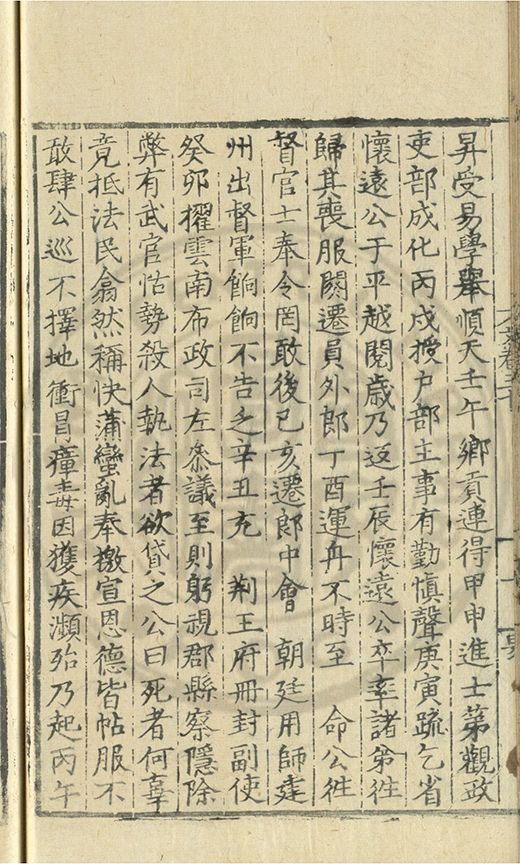 昇受易學舉順天壬午鄉貢連得甲申進士第觀政
吏部成化丙戌授戶部主事有勤慎聲庚寅疏乞省
懷遠公于平越閱歲乃返壬辰懷遠公卒率諸弟徃
歸其喪服闋遷員外郎丁酉運舟不時至 命公徃
督官士奉令罔敢後己亥遷郎中會 朝廷用師建
州出督軍餉餉不告乏辛丑充 荆王府冊封副使
癸卯擢雲南布政司左叅議至則躬視郡縣察隱除
弊有武官怙勢殺人執法者欲貸之公曰死者何辜
竟抵法民翕然稱快蒲蠻亂奉檄宣恩德皆帖服不
敢肆公巡不擇地衝冒瘴毒因獲疾瀕殆乃起丙午